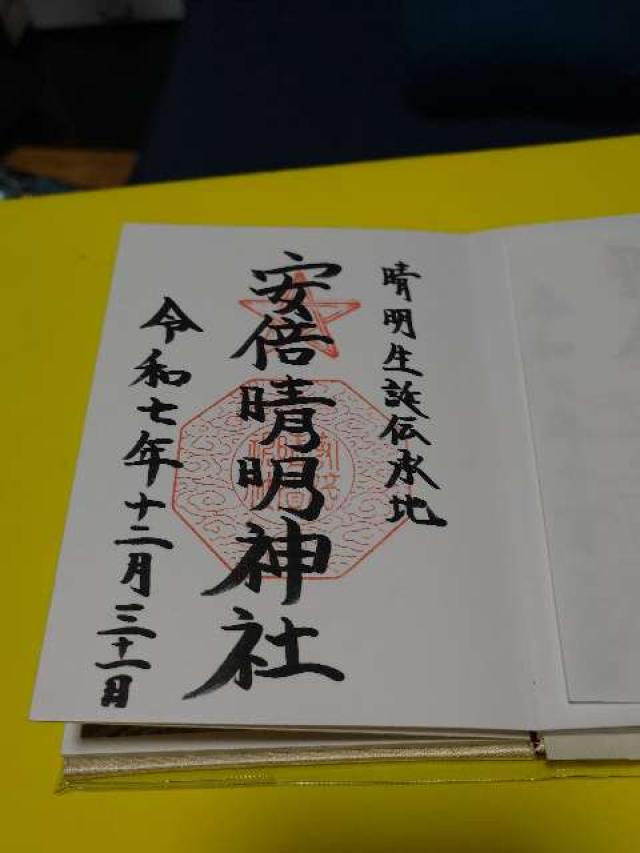 晴明生誕伝承地
安倍晴明神社
令和七年十二月三十一日